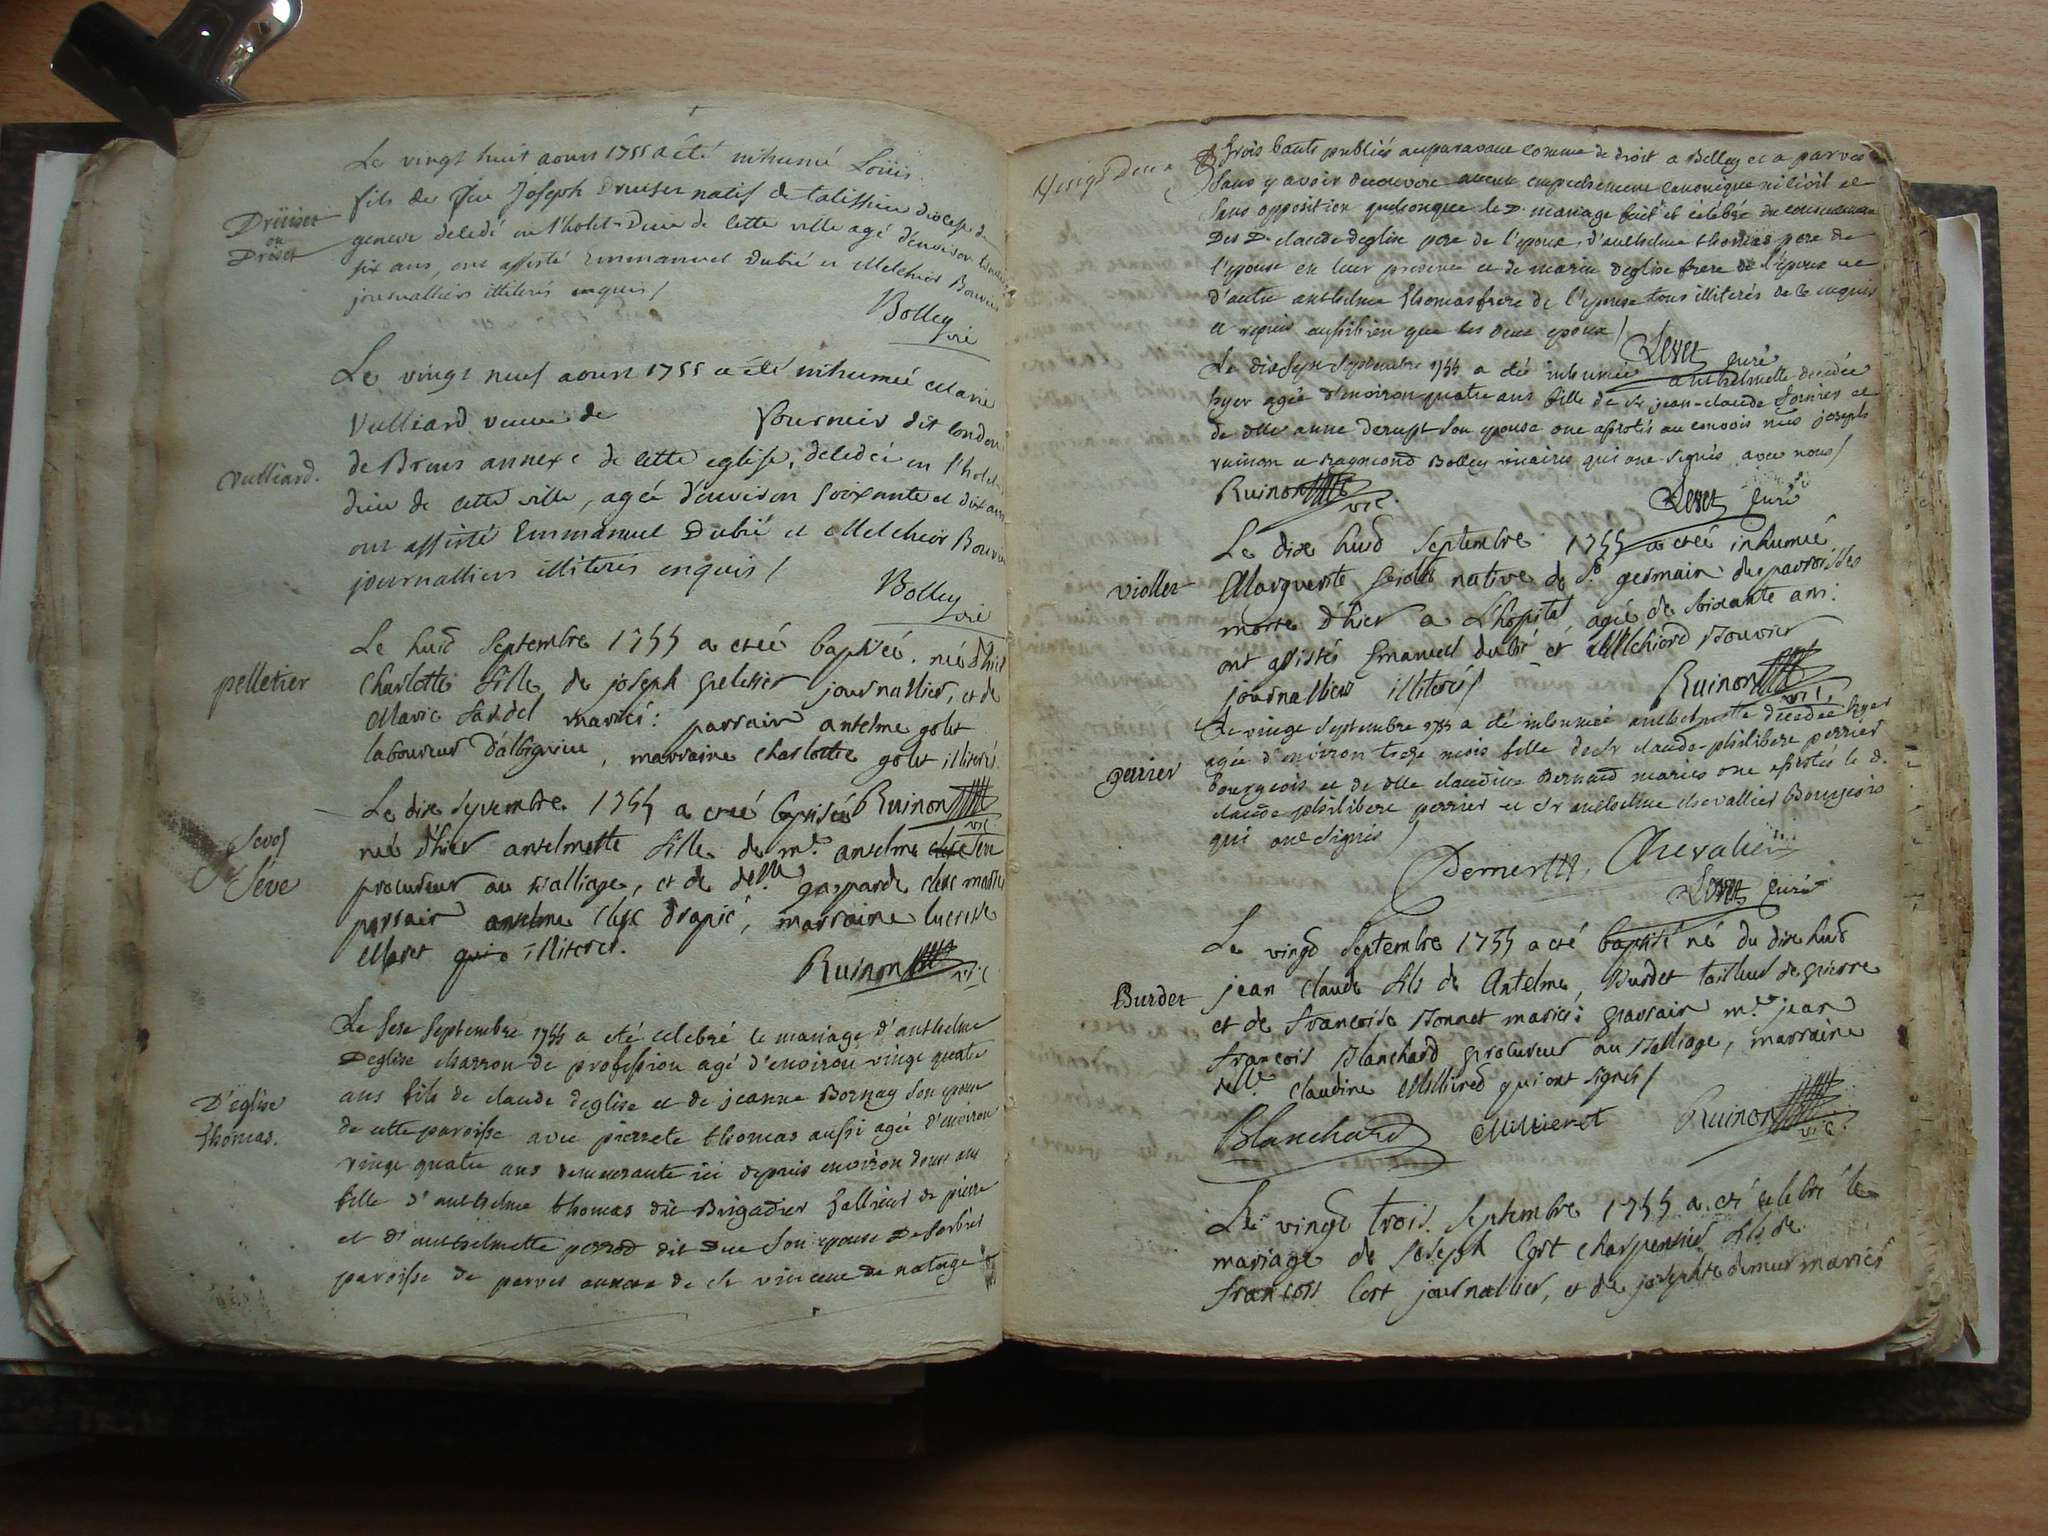 Le vingt huit aoust 1755 a été inhumé Loüis
fils de feu Joseph Druiser natif de talissieu diocese de
Drüiser
ou
Driset
geneve decedé en l'hotel-Dieu de cette ville agé d'environ
six ans, ont assisté Emmanuel Dubié et Melchior Bouvier
journalliers illiterés enquis /
Bolley
vic
Le vingt neuf aoust 1755 a été inhumée Marie
Vulliard veuve de fournier dit london
Vulliard.
de Brens annexe de cette eglise, decedée en l'hotel
dieu de cette ville, agée d'environ soixante et dix ans
ont assisté Emmanuel Dubié et Melchior Bouvier
journalliers illiterés enquis /
Bolley
vic
Le huit Septembre 1755 a eté baptisée née d'hier
pelletier
charlotte fille de joseph pelissier journallier, et de
Marie sardel mariés: parrain antelme golet
laboureur d'albignieu, marraine charlotte golet illiterés.
Ruinon vic
Le dix Septembre 1755 a eté baptisée
Sevoz
Seve
née d'hier antelmette fille de me. antelme Seve
procureur au Balliage, et de delle. gasparde
parrain antelme drapié, marraine lucresse
Maret illiteres.
Ruinon vic
Le seze Septembre 1755 a eté celebré le mariage d'anthelme
Deglise charron de profession agé d'environ vingt quatre
D'eglise
thomas.
ans fils de claude deglise et de jeanne Bornay son epouse
de cette paroisse avec pierrete thomas aussi agée d'environ
vingt quatre ans demeurante ici depuis environ douze ans
fille d'anthelme thomas dit Brigadier tallieur de pierre
et d'anthelmette perrod dit Duc son epouse De Sorbier
paroisse de parves annexe de St vincent de natage
trois bants publiés auparavant comme de droit a Belley et a parves
sans y avoir decouvert aucun empeschement canonique ni civil et
sans opposition quelconque le D. mariage fait et célébré du consentement
Des D. claude deglise pere de l'epoux, d'anthelme thomas pere de
l'epouse en leur presence et de marin deglise frere de l'epoux et
d'autre anthelme thomas frere de l'epouse tous illiterés de ce enquis
et requis aussi bien que les deux epoux /
Levet curé
Le dix sept Septembre 1755 a été inhumée anthelmette decedée
hyer agée d'environ quatre ans fille de Sr jean-claude
de Dlle anne derupt son epouse ont assistés au convois mes joseph
ruinon et Raymond Bolley vicaires qui ont signés avec nous /
Ruinon vic. Levet curé
Le dix huit Septembre 1755 a eté inhumée
viollet
Marguerite native de St. germain des parroisses
morte d'hier a L'hopital, agée de soixante ans:
ont assistés Emanuel dubié et Melchiord Bouvier
journalliers illiterés /
Ruinon vic.
Le vingt Septembre 1755 a été inhumée anthelmette décedée hyer
perrier
agée d'environ treze mois fille de Sr claude-philibert perrier
Bourgeois et de Dlle claudine Bernard mariés ont assistés le D.
claude philibert perrier et Sr anthelme chevallier Bourgeois
qui ont signés /
Chevalier
Levet curé
Le vingt Septembre 1755 a eté baptisé né du dix huit
Burdet
jean claude fils de Antelme Burdet tailleur de pierre
et de francoise Bonnet mariés: parrain me. jean
francois Blanchard procureur au Balliage, marraine
delle. claudine Millieret qui ont signés /
Blanchard Millieret Ruinon vic.
Le vingt trois Septembre 1755 a eté celebré le
mariage de Joseph Cort charpentier fils de
francois Cort journallier, et de josephte mariés